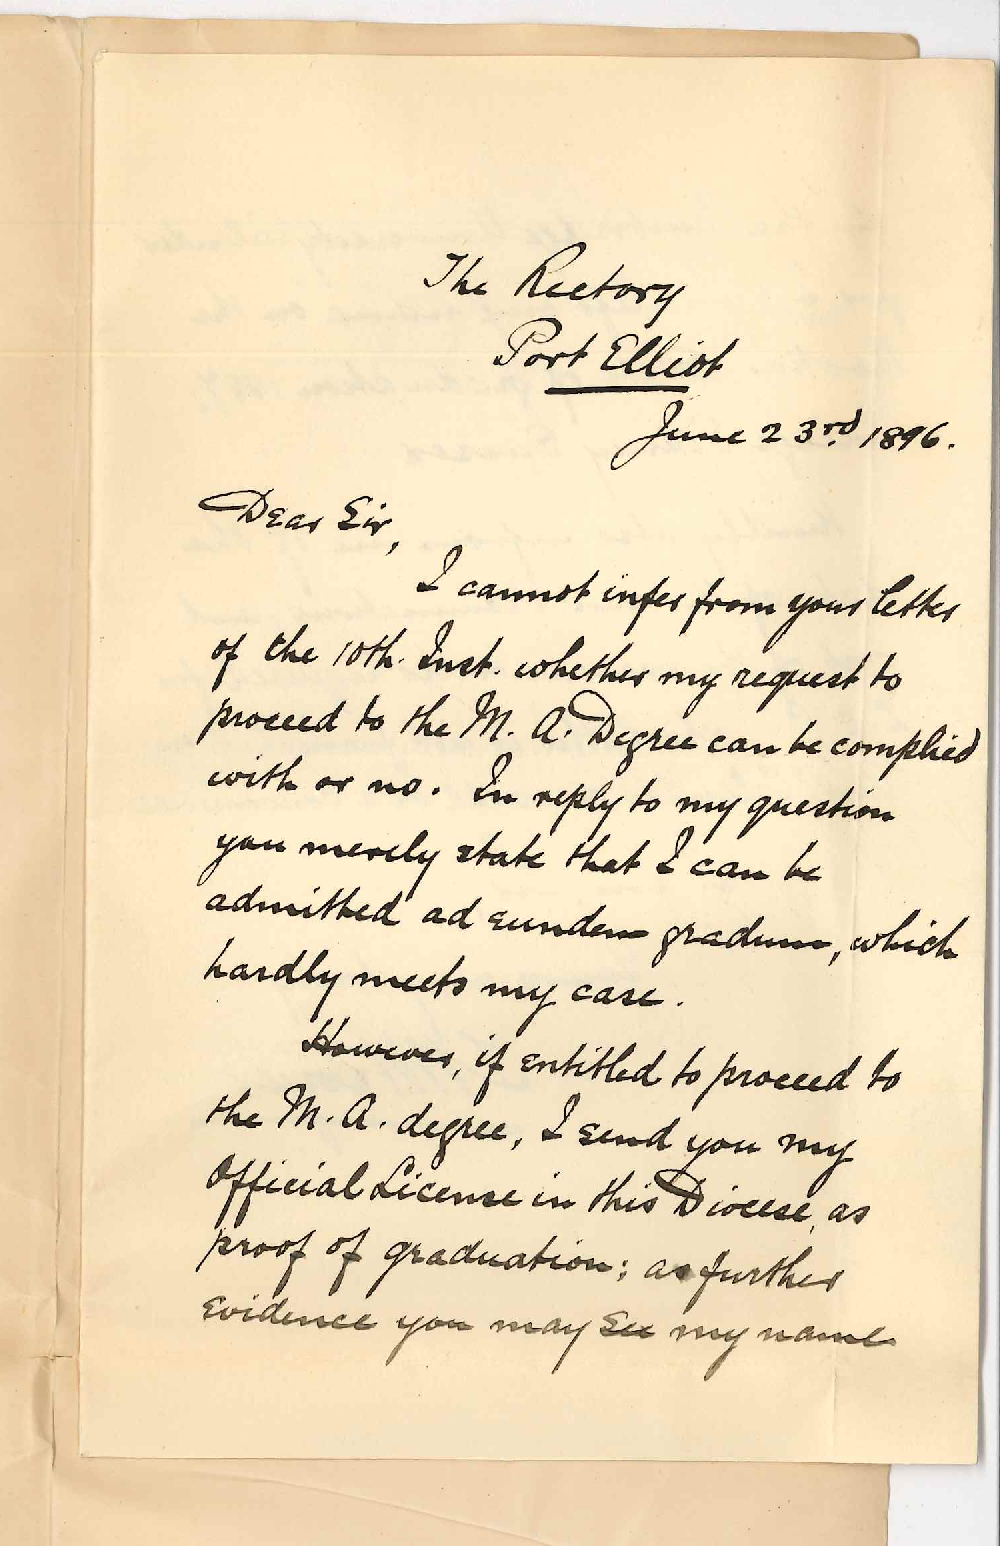 The Rectory
Port Elliot
June 23rd. 1896.
Dear Sir,
I cannot infer from your letter
of the 10th. Inst. whether my request to
proceed to the M. A. Degree can be complied
with or no. In reply to my question
you merely state that I can be
admitted ad eundem gradum, which
hardly meets my case.
However, if entitled to proceed to
the M. A. degree, I send you my
Official License in this Diocese, as
proof of graduation; as further
evidence you may see my name